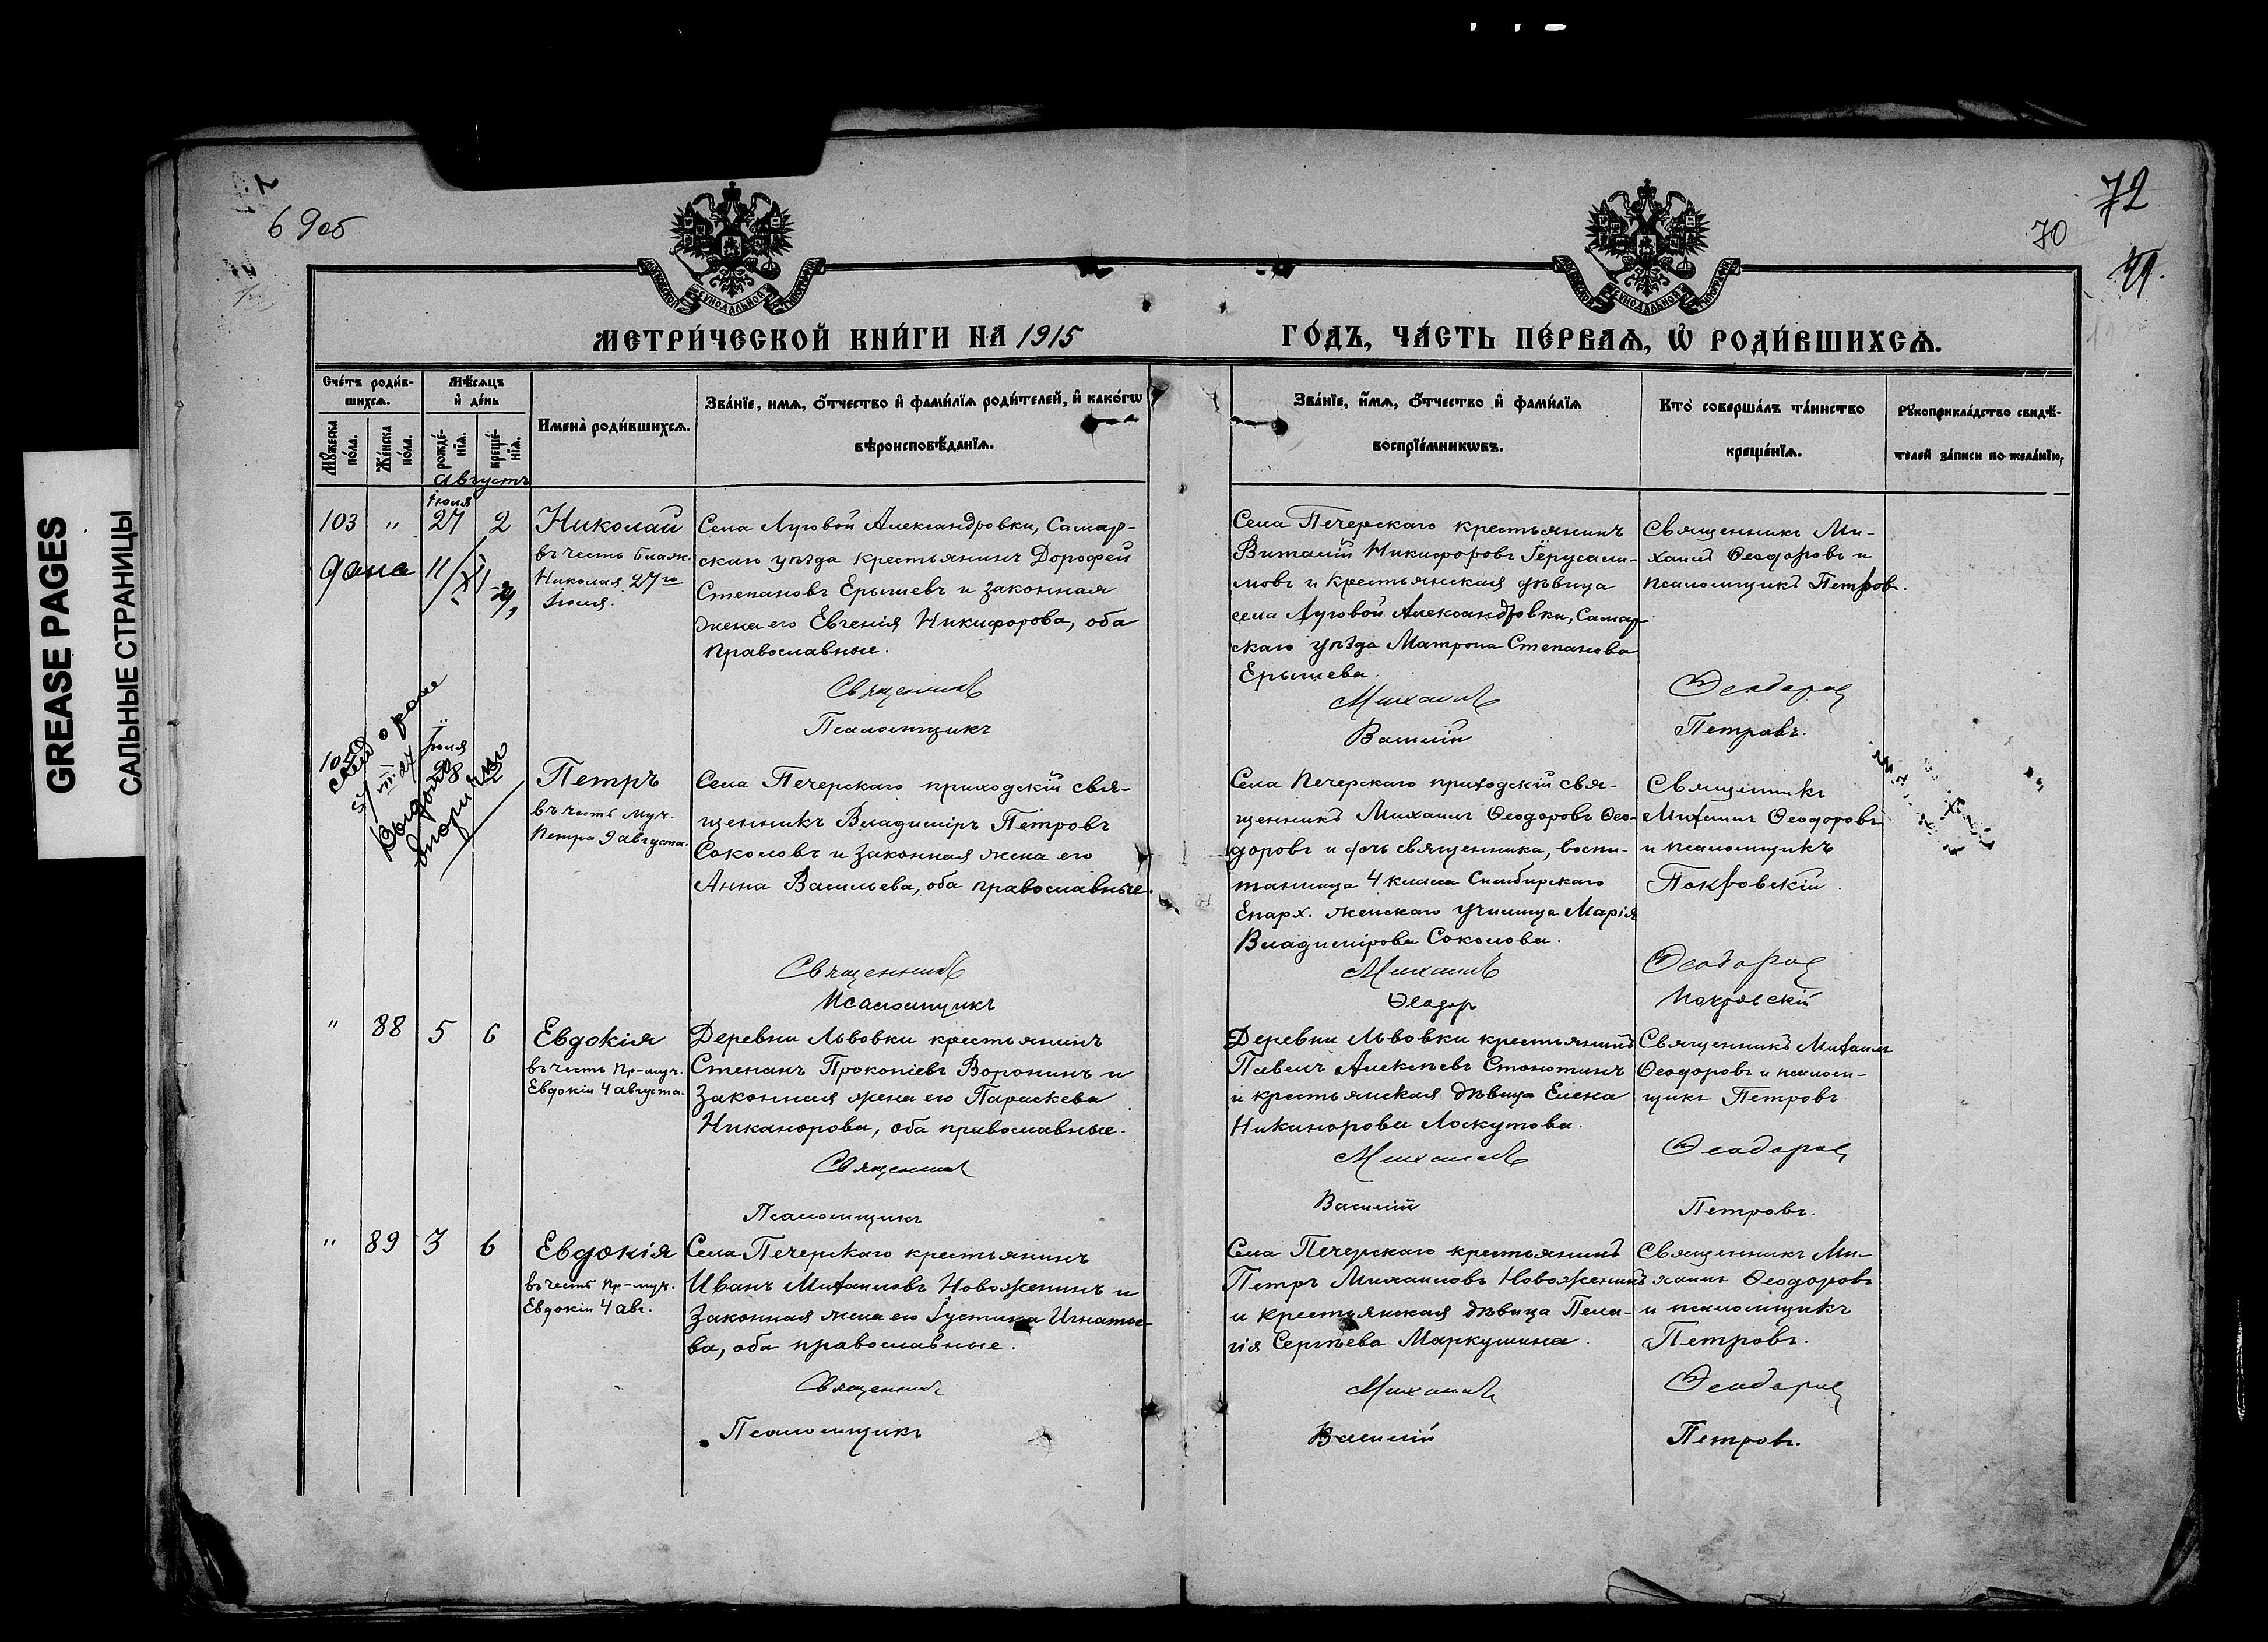 GREASE PAGES
САЛЬНЫЕ СТРАНИЦЫ
69об
72
70
71.
МЕТРИ́ЧЕСКОЙ КНИ́ГИ НА 1915
ГО́ДЪ, ЧА́СТЬ ПЕ́РВАѦ, Ѡ҆ РОДИ́ВШИХСѦ.
Сче́тъ роди́в-
шихсѧ.
Мꙋ́жеска по́ла.
Же́нска по́ла.
Мѣ́сѧцъ
и҆ де́нь
рожде́-
нїѧ.
креще́-
нїѧ.
Имена̀ роди́вшихсѧ.
Зва́нїе, имѧ, ѻ҆́тчество и҆ фами́лїѧ роди́телей, и҆ како́гѡ
вѣроисповѣ́данїѧ.
Зва́нїе, и҆́мѧ, ѻ҆́тчество и҆ фами́лїѧ
воспрїе́мникѡвъ.
Кто̀ соверша́лъ та́инство
креще́нїѧ.
Рꙋкоприкла́дство свидѣ́-
телей за́писи по жела́нїю,
Августъ
Іюля
103 " 27 2
дана 11/XI
Николай
въ честь Блаж.
Николая 27го
Іюля.
Села Луговой Александровки, Самар-
скаго уѣзда крестьянинъ Дорофей
Степановъ Ерышевъ и законная
жена его Евгенія Никифорова, оба
православные.
Священникъ
Псаломщикъ
Села Печерскаго крестьянинъ
Виталій Никифоровъ Іерусали-
мовъ и крестьянская дѣвица
села Луговой Александровки, Самар-
скаго уѣзда Матрона Степанова
Ерышева.
Михаилъ
Василій
Священникъ Ми-
хаилъ Ѳеодоровъ и
псаломщикъ Петровъ.
Ѳеодоровъ
Петровъ.
104
Іюля
28 2
Выдано
вторично
Петръ
въ честь муч.
Петра 9 августа.
Села Печерскаго приходскій свя-
щенникъ Владиміръ Петровъ
Соколовъ и законная жена его
Анна Васильева, оба православные.
Священникъ
Псаломщикъ
Села Печерскаго приходскій свя-
щенникъ Михаилъ Ѳеодоровъ Ѳео-
доровъ и дочь священника, воспи-
танница 4 класса Симбирскаго
Епарх. женскаго училища Марія
Владимірова Соколова.
Михаилъ
Ѳеодоръ
Священникъ
Михаилъ Ѳеодоровъ
и псаломщикъ
Покровскій.
Ѳеодоровъ
Покровскій
" 88 5 6
Евдокія
въ честь Пр-муч.
Евдокіи 4 августа.
Деревни Львовки крестьянинъ
Степанъ Прокопіевъ Воронинъ и
законная жена его Параскева
Никанорова, оба православные.
Священникъ
Псаломщикъ
Деревни Львовки крестьянинъ
Павелъ Алексѣевъ Стонотинъ
и крестьянская дѣвица Елена
Никанорова Лоскутова.
Михаилъ
Василій
Священникъ Михаилъ
Ѳеодоровъ и псалом-
щикъ Петровъ
Ѳеодоровъ
Петровъ.
" 89 3 6
Евдокія
въ честь Пр-муч.
Евдокіи 4 авг.
Села Печерскаго крестьянинъ
Иванъ Михаиловъ Новоженинъ и
законная жена его Іустина Игнатье-
ва, оба православные.
Священникъ
Псаломщикъ
Села Печерскаго крестьянинъ
Петръ Михаиловъ Новоженинъ
и крестьянская дѣвица Пела-
гія Сергѣева Маркушина.
Михаилъ
Василій
Священникъ Ми-
хаилъ Ѳеодоровъ
и псаломщикъ
Петровъ.
Ѳеодоровъ
Петровъ.